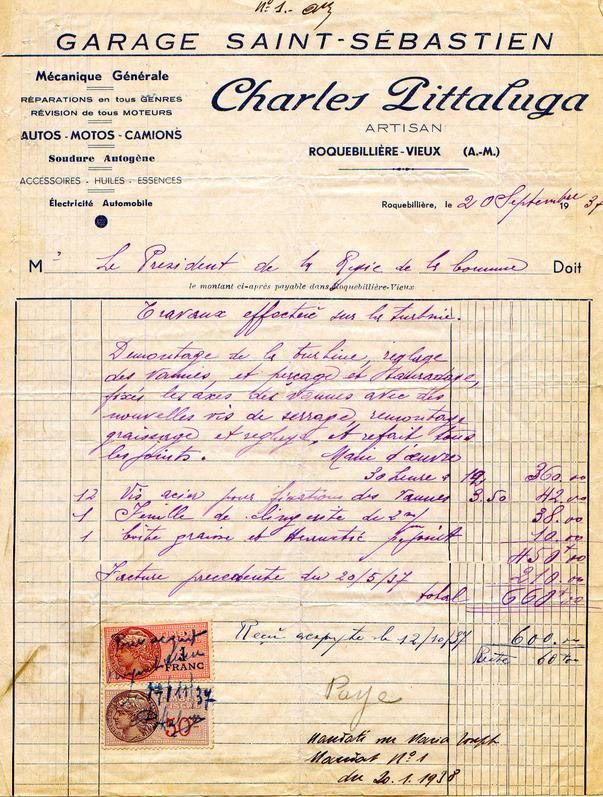 N° 1.-
GARAGE SAINT-SÉBASTIEN
Mécanique Générale
RÉPARATIONS en tous GENRES
RÉVISION de tous MOTEURS
AUTOS - MOTOS - CAMIONS
Soudure Autogène
ACCESSOIRES - HUILES - ESSENCES
Électricité Automobile
Charles Pittaluga
ARTISAN
ROQUEBILLIÈRE-VIEUX (A.-M.)
Roquebillière, le 20 Septembre 1937
M Le President de la Regie de la Commune Doit
le montant ci-après payable dans Roquebillière-Vieux
Travaux effectué sur la turbine.
Demontage de la turbine, reglage
des Vannes, et perçage et
fixés les axes des Vannes avec des
nouvelles vis de serrage, remontage
graissage et reglage, et refait tous
les joints. Main d'œuvre
30 heure à 12 360.00
12 Vis acier pour fixations des Vannes 3.50 42.00
1 Feuille de 38.00
1 boite graisse et Hermetic p. joint 10.00
450.00
Facture precedente du 20/5/37 210.00
total 660.00
Reçu acompte le 12/10/37 600.00
Reste 60.00
Pour acquit
FRANC
17/11/37
50c
Paye
Mandaté au Maria Joseph
Mandat N° 1
du 20.1.1938